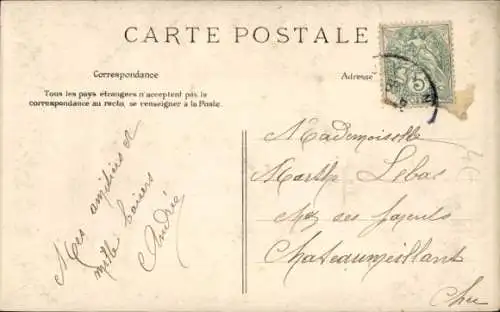 CARTE POSTALE
Correspondance
Adresse
Tous les pays étrangers n'acceptent pas la
correspondance au recto, se renseigner à la Poste.
5
Mes amitiés et
mille baisers
Andrée
Mademoiselle
Marthe Lebas
chez ses parents
Chateaumeillant
Cher